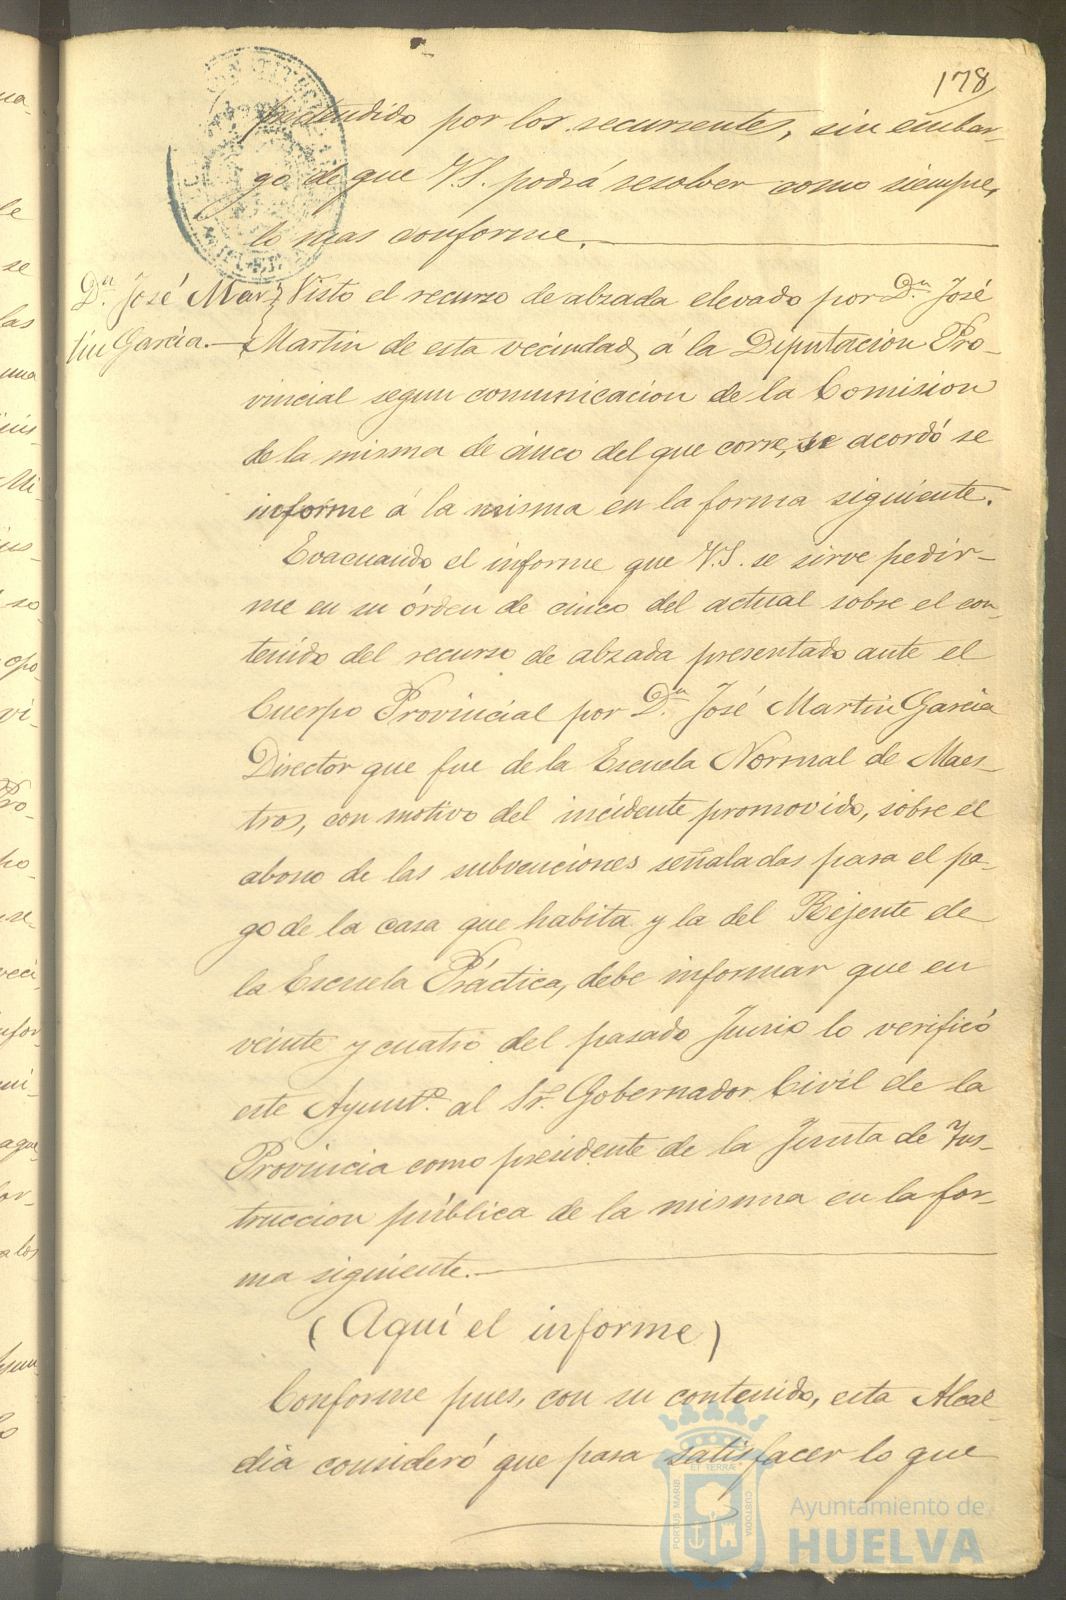 178
pretendido por los recurrentes, sin embar-
go de que V.S. podrá resolver como siempre,
lo mas conforme.
Dn. José Mar-
tin Garcia.
Visto el recurso de alzada elevado por Dn. José
Martin de esta vecindad, á la Diputacion Pro-
vincial segun comunicacion de la Comision
de la misma de cinco del que corre, se acordó se
informe á la misma en la forma siguiente.
Evacuando el informe que V.S. se sirve pedir-
me en su órden de cinco del actual sobre el con-
tenido del recurso de alzada presentado ante el
Cuerpo Provincial por Dn. José Martin Garcia
Director que fue de la Escuela Normal de Maes-
tros, con motivo del incidente promovido, sobre el
abono de las subvenciones señaladas para el pa-
go de la casa que habita y la del Rejente de
la Escuela Práctica, debe informar que en
veinte y cuatro del pasado Junio lo verificó
este Ayuntº. al Sr. Gobernador Civil de la
Provincia como presidente de la Junta de Ins-
truccion pública de la misma en la for-
ma siguiente.
(Aquí el informe)
Conforme pues, con su contenido, esta Alcal-
dia consideró que para satisfacer lo que
PORTUS MARIS
ET TERRÆ
CUSTODIA
Ayuntamiento de
HUELVA